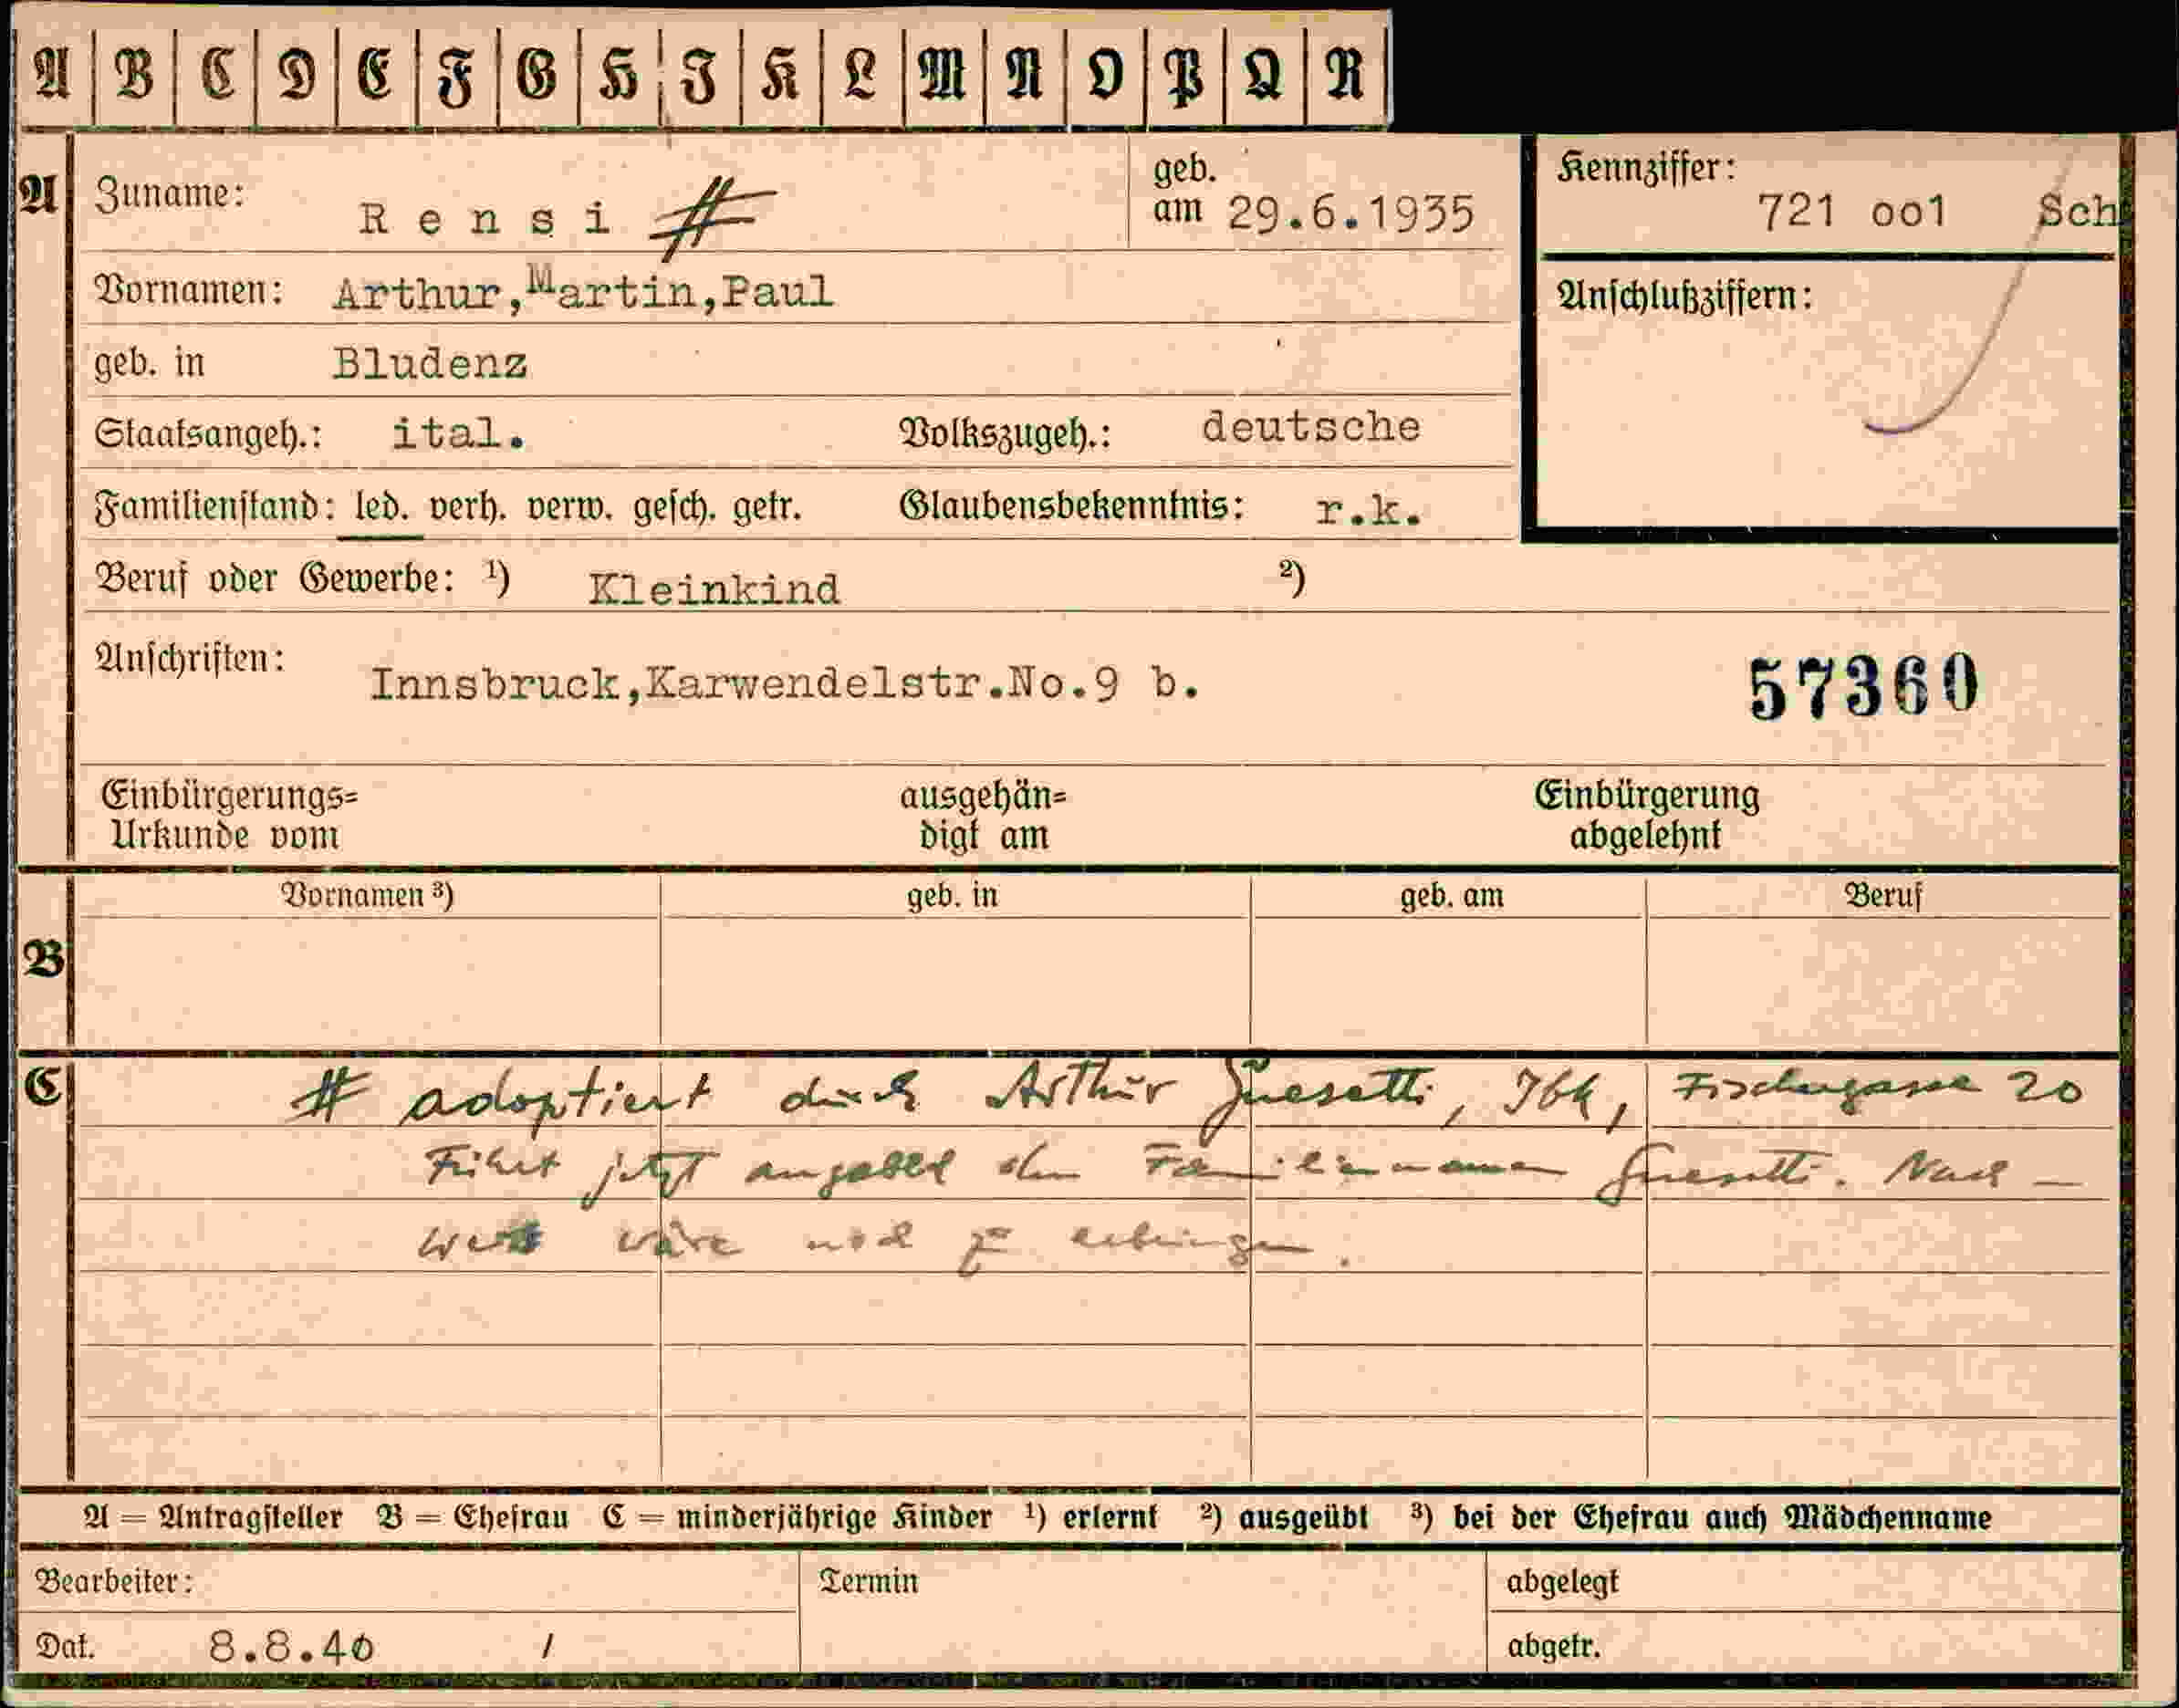 A B C D E F G H J K L M N O P Q R
A
Zuname: Rensi #
geb. am 29.6.1935
Kennziffer: 721 oo1 Sch
Vornamen: Arthur,Martin,Paul
Anschlußziffern:
geb. in Bludenz
Staatsangeh.: ital. Volkszugeh.: deutsche
Familienstand: led. verh. verw. gesch. getr. Glaubensbekenntnis: r.k.
Beruf oder Gewerbe: ¹) Kleinkind ²)
Anschriften: Innsbruck,Karwendelstr.No.9 b.
57360
Einbürgerungs=
Urkunde vom
ausgehän=
digt am
Einbürgerung
abgelehnt
B
Vornamen ³) geb. in geb. am Beruf
C
# adoptiert durch Arthur, Ibk, Fischergasse 20
Führt jetzt angebl den Familiennamen. Nach-
weis wäre noch zu erbringen.
A = Antragsteller B = Ehefrau C = minderjährige Kinder ¹) erlernt ²) ausgeübt ³) bei der Ehefrau auch Mädchenname
Bearbeiter: Termin abgelegt
Dat. 8.8.40 / abgetr.